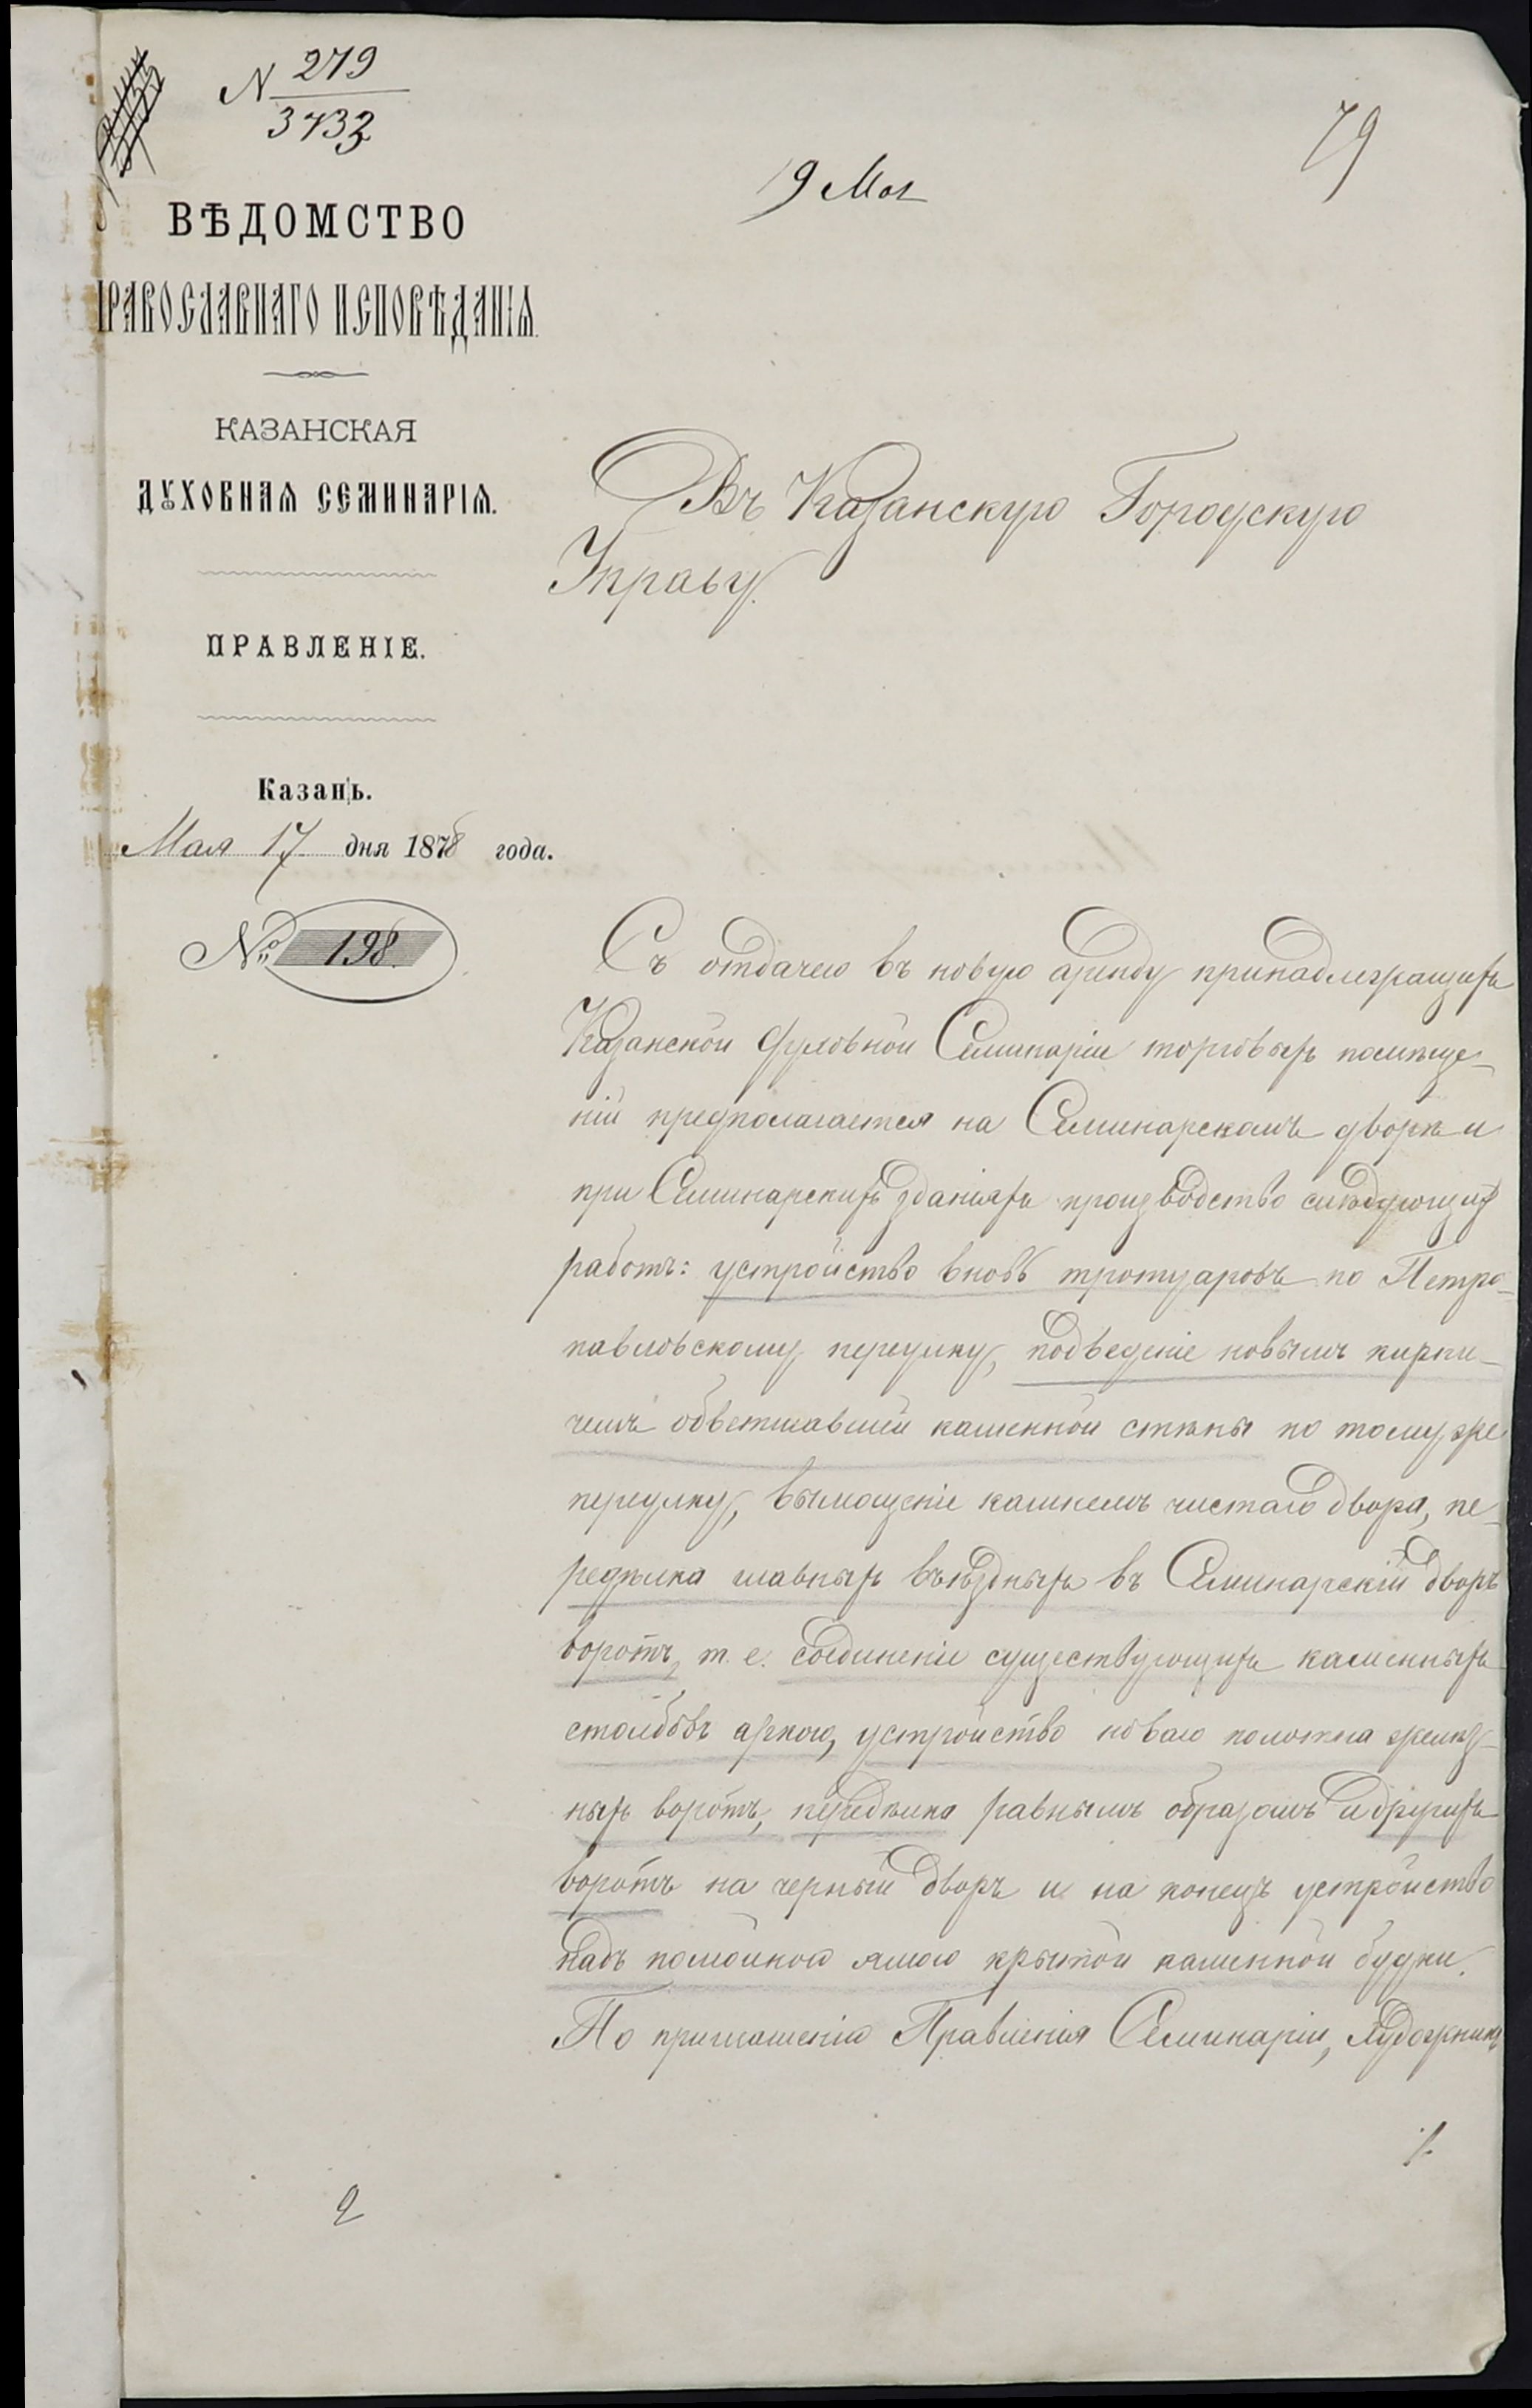 N 279
3733
79
19 Мая
ВѢДОМСТВО
ПРАВОСЛАВНАГО ИСПОВѢДАНІЯ.
КАЗАНСКАЯ
ДУХОВНАЯ СЕМИНАРІЯ.
ПРАВЛЕНІЕ.
Казань.
Мая 17 дня 1878 года.
№ 198.
Въ Казанскую Городскую
Управу.
Съ отдачею въ новую аренду принадлежащихъ
Казанской Духовной Семинаріи торговыхъ помѣще-
ній предполагается на Семинарскомъ дворѣ и
при Семинарскихъ зданіяхъ производство слѣдующихъ
работъ: устройство вновь тротуаровъ по Петро-
павловскому переулку, подведеніе новымъ кирпи-
чемъ обветшавшей каменной стѣны по тому же
переулку, вымощеніе камнемъ чистаго двора, пе-
редѣлка главныхъ въѣздныхъ въ Семинарскій дворъ
воротъ, т. е. соединеніе существующихъ каменныхъ
столбовъ аркою, устройство новаго полотна желѣз-
ныхъ воротъ, передѣлка равнымъ образомъ и другихъ
воротъ на черный дворъ и на конецъ устройство
надъ помойною ямою крытой каменной будки.
По приглашенію Правленія Семинаріи, Художникъ
./.
2